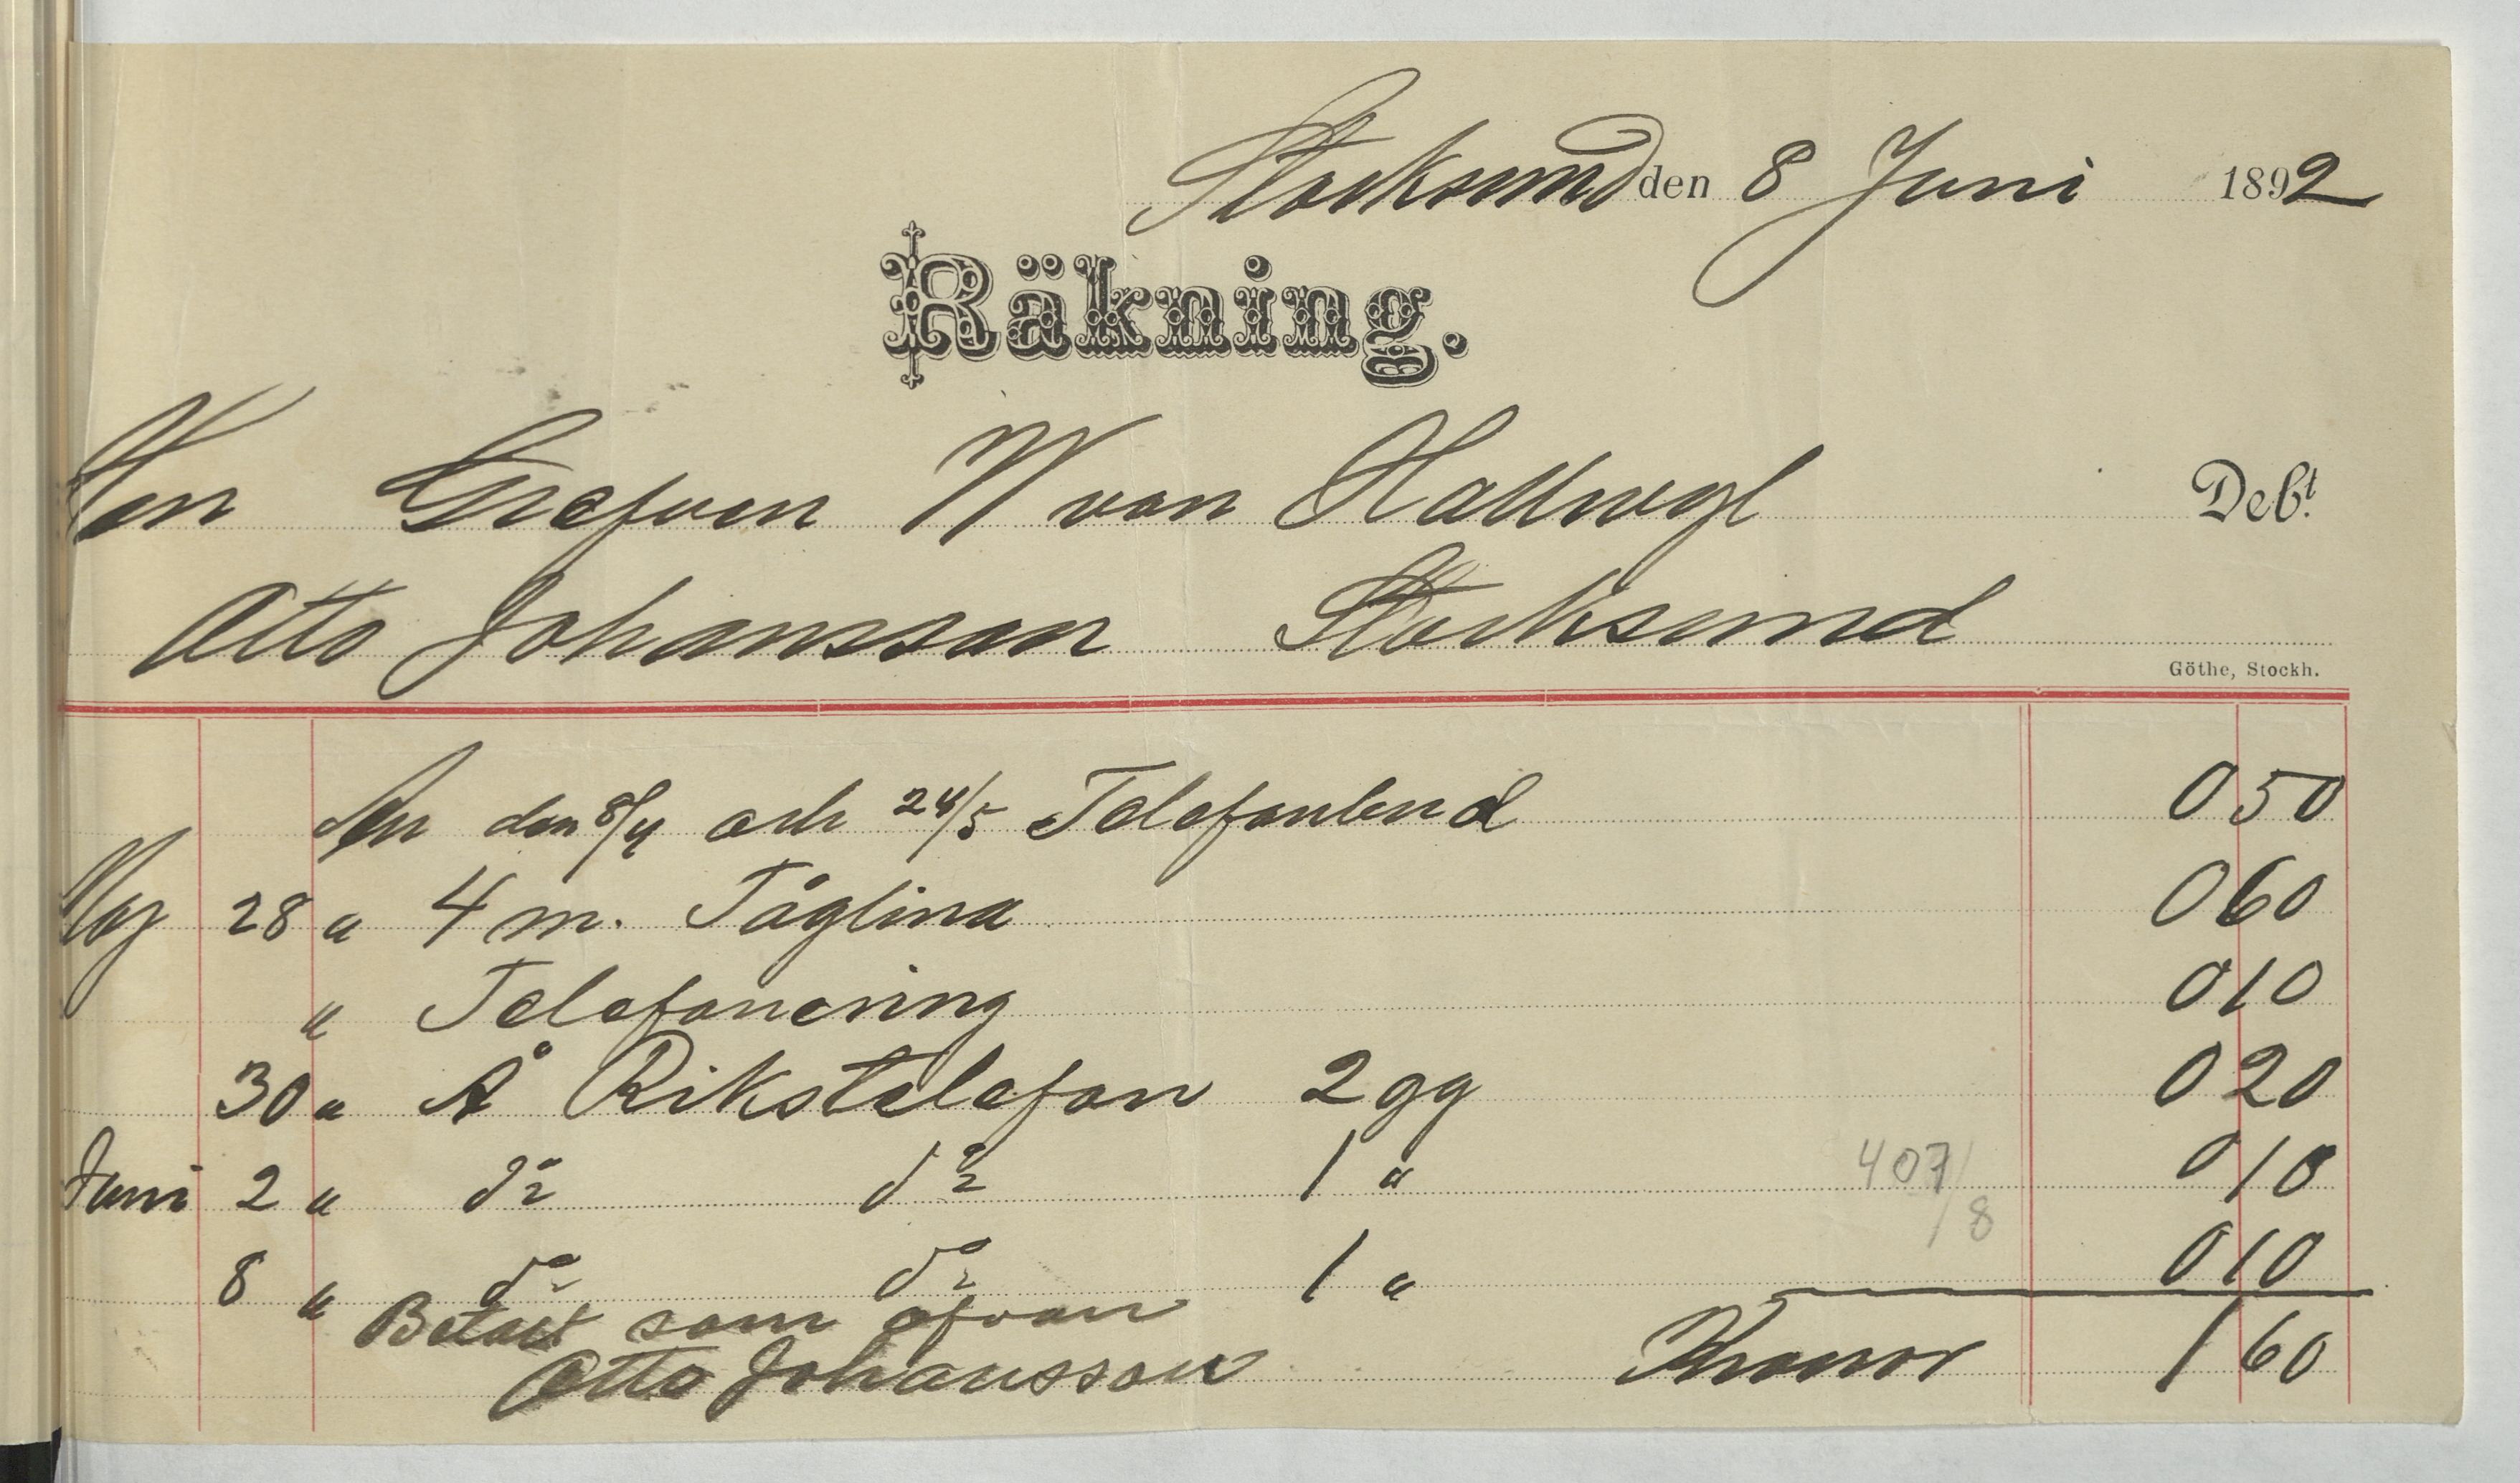 Stocksund den 8 Juni 1892
Räkning.
Herr Grefven W von Hallwyl Debt.
Otto Johansson Stocksund
Göthe, Stockh.
den 8/4 och 24/5 Telefonbud 0 50
Maj 28 " 4 m. Tåglina 0 60
" Telefonering 0 10
30 " Å Rikstelefon 2 gg 0 20
Juni 2 " do do 1 " 0 10
407/8
8 " do do 1 " 0 10
Betalt som ofvan
Otto Johansson Kronor 1 60